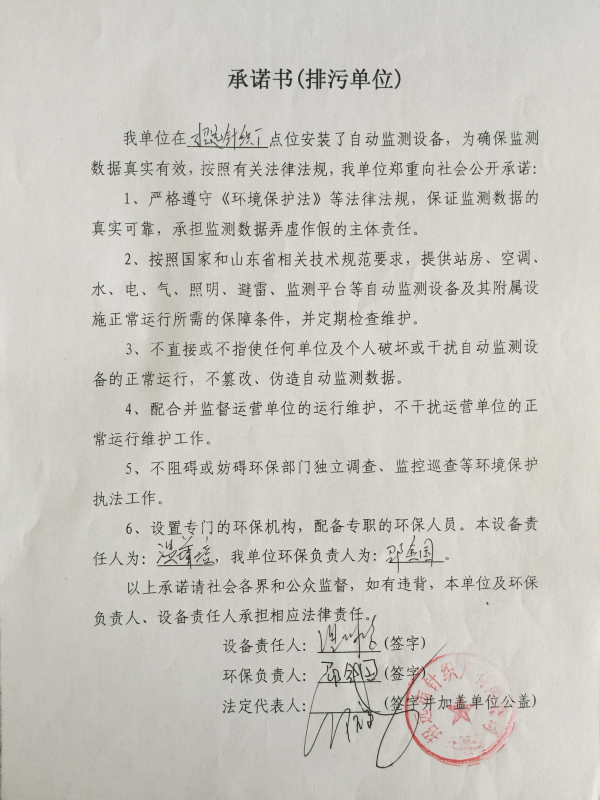 承诺书(排污单位)
我单位在招远针织厂点位安装了自动监测设备，为确保监测
数据真实有效，按照有关法律法规，我单位郑重向社会公开承诺：
1、严格遵守《环境保护法》等法律法规，保证监测数据的
真实可靠，承担监测数据弄虚作假的主体责任。
2、按照国家和山东省相关技术规范要求，提供站房、空调、
水、电、气、照明、避雷、监测平台等自动监测设备及其附属设
施正常运行所需的保障条件，并定期检查维护。
3、不直接或不指使任何单位及个人破坏或干扰自动监测设
备的正常运行，不篡改、伪造自动监测数据。
4、配合并监督运营单位的运行维护，不干扰运营单位的正
常运行维护工作。
5、不阻碍或妨碍环保部门独立调查、监控巡查等环境保护
执法工作。
6、设置专门的环保机构，配备专职的环保人员。本设备责
任人为：，我单位环保负责人为：。
以上承诺请社会各界和公众监督，如有违背，本单位及环保
负责人、设备责任人承担相应法律责任。
设备责任人：(签字)
环保负责人：(签字)
法定代表人：(签字并加盖单位公盖)
招远市针织厂有限公司